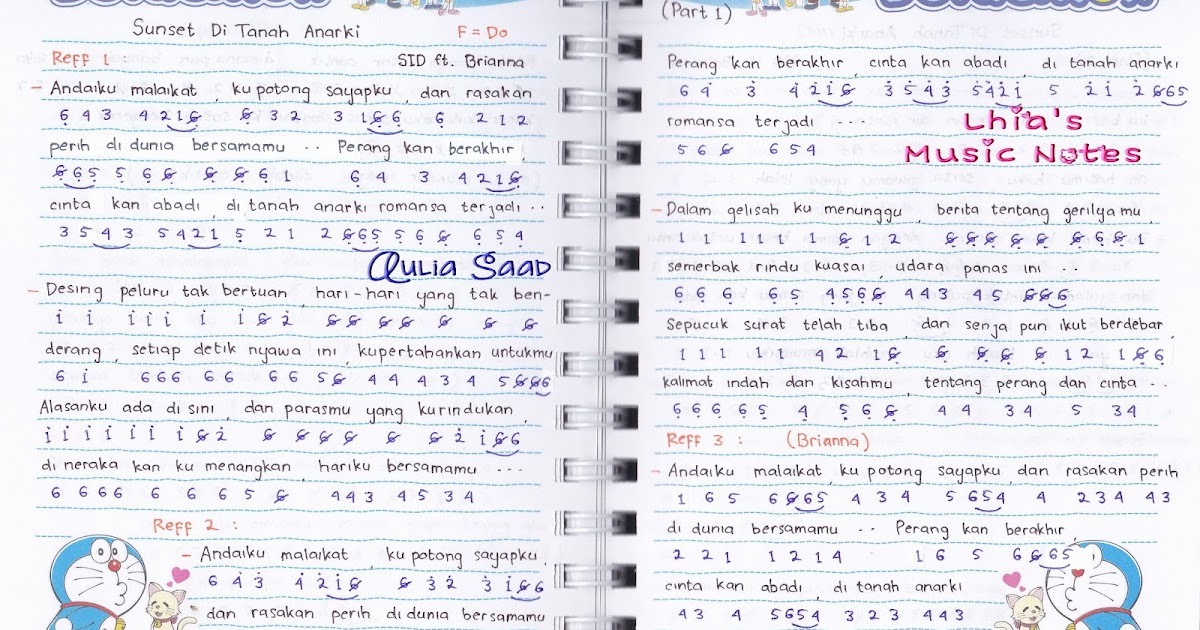 Sunset Di Tanah Anarki F = Do
Reff 1 : SID ft. Brianna
- Andaiku malaikat, ku potong sayapku, dan rasakan
6̣ 4 3 4 2 1 6̸ 6̸ 3 2 3 1 6̸ 6̣ 6̣ 2 1 2
perih di dunia bersamamu .. Perang kan berakhir,
6̸ 6̣ 5̣ 5̣ 6̣ 6̸ 6̸ 6̸ 6̣ 1 6̣ 4 3 4 2 1 6̸
cinta kan abadi, di tanah anarki romansa terjadi..
3 5 4 3 5 4 2 1 5̣ 2 1 2 6̸ 6̣ 5̣ 5̣ 6̣ 6̸ 6̣ 5̣ 4̣
Aulia Saad
- Desing peluru tak bertuan, hari-hari yang tak ben-
i i i i i i i 6̸ 2̇ 6̸ 6̸ 6̸ 6̸ 6̸ 6̸ 6̸
derang, setiap detik nyawa ini kupertahankan untukmu
6 i 6 6 6 6 6 6 6 5 6̸ 4 4 4 3 4 5 6̸ 6̸ 6
Alasanku ada di sini, dan parasmu yang kurindukan,
i i i i i i i 6̸ 2̇ 6̸ 6̸ 6̸ 6̸ 6̸ 6̸ 2̇ i 6̸ 6
di neraka kan ku menangkan hariku bersamamu ...
6 6 6 6 6 6 6 5 6̸ 4 4 3 4 5 3 4
Reff 2 :
- Andaiku malaikat, ku potong sayapku,
6 4̇ 3̇ 4̇ 2̇ i 6̸ 6̸ 3̇ 2̇ 3̇ i 6̸ 6
dan rasakan perih di dunia bersamamu
(Part 1)
Perang kan berakhir, cinta kan abadi, di tanah anarki
6 4̇ 3̇ 4̇ 2̇ i 6̸ 3̇ 5̇ 4̇ 3̇ 5̇ 4̇ 2̇ i 5 2̇ i 2̇ 6̸ 6 5
romansa terjadi ...
5 6 6̸ 6 5 4
Lhia's
Music Notes
- Dalam gelisah ku menunggu, berita tentang gerilyamu,
1 1 1 1 1 1 1 6̸ 1 2 6̸ 6̸ 6̸ 6̸ 6̸ 6̸ 6̣ 6̸ 1
semerbak rindu kuasai udara panas ini ..
6̣ 6̣ 6̣ 6̣ 5̣ 4̣ 5̣ 6̣ 6̸ 4 4 3 4 5 6̸ 6̸ 6
Sepucuk surat telah tiba, dan senja pun ikut berdebar,
1 1 1 1 1 4 2 1 6̸ 6̸ 6̸ 6̸ 6̸ 1 2 1 6̸ 6̣
kalimat indah dan kisahmu, tentang perang dan cinta ..
6̣ 6̣ 6̣ 6̣ 5̣ 4̣ 5̣ 6̣ 6̸ 4 4 3 4 5 3 4
Reff 3 : (Brianna)
- Andaiku malaikat, ku potong sayapku, dan rasakan perih
1 6 5 6 6̸ 6 5 4 3 4 5 6 5 4 4 2 3 4 4 3
di dunia bersamamu .. Perang kan berakhir,
2 2 1 1 2 1 4 1 6 5 6 6̸ 6 5
cinta kan abadi, di tanah anarki
4 3 4 5 6 5 4 3 2 3 4 4 3